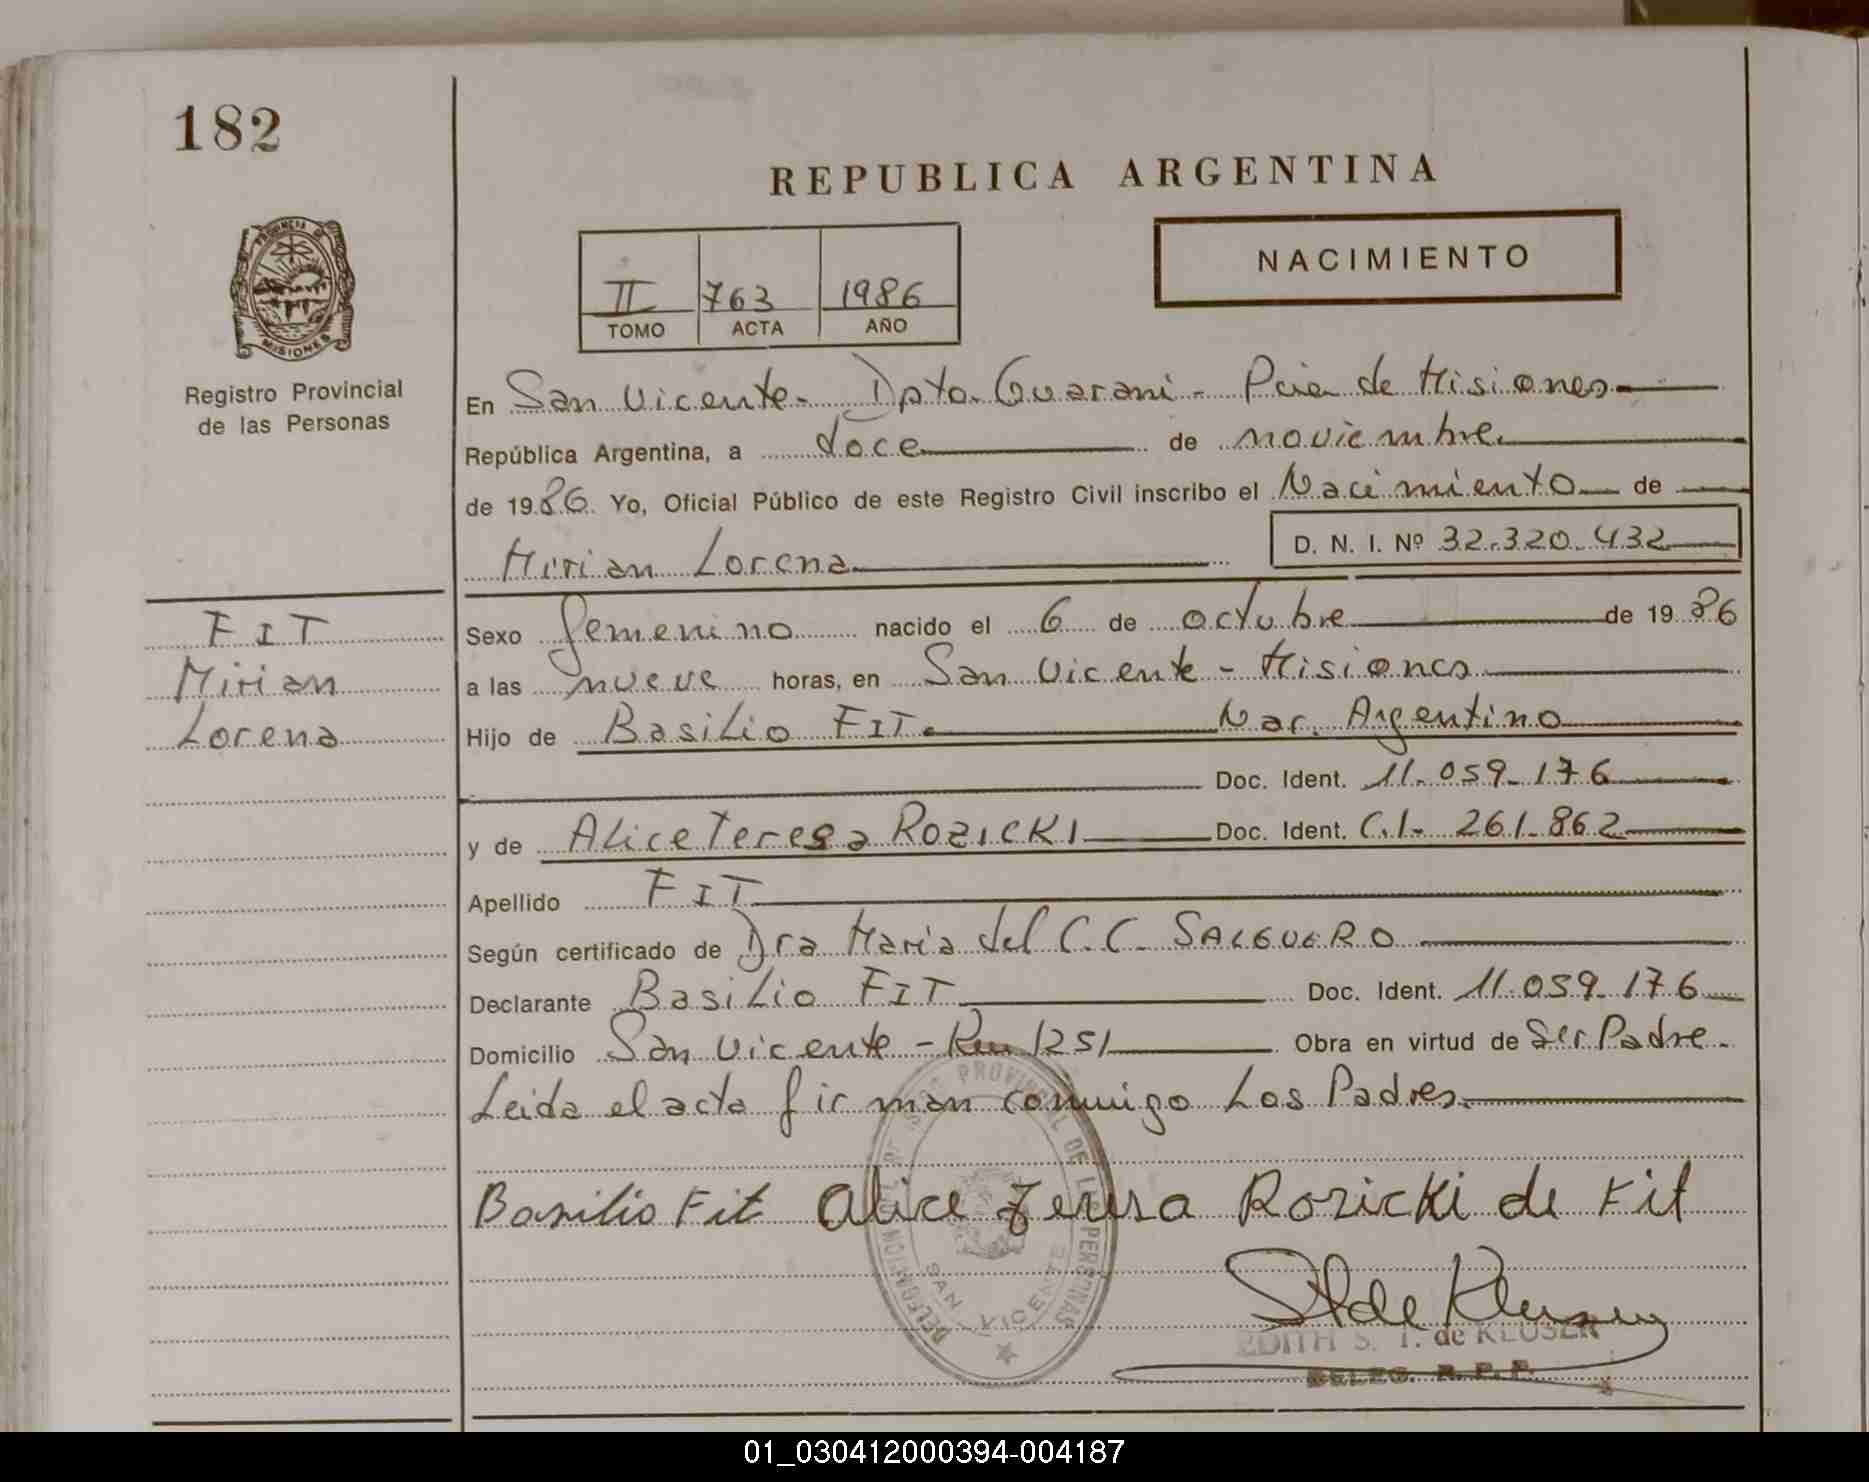 182
REPUBLICA ARGENTINA
NACIMIENTO
PROVINCIA DE
MISIONES
Registro Provincial
de las Personas
II 763 1986
TOMO ACTA AÑO
En San Vicente - Dpto. Guarani - Pcia de Misiones
República Argentina, a doce de noviembre
de 1986 Yo, Oficial Público de este Registro Civil inscribo el Nacimiento de
Mirian Lorena
D. N. I. Nº 32.320.432
FIT
Mirian
Lorena
Sexo femenino nacido el 6 de octubre de 1986
a las nueve horas, en San Vicente - Misiones
Hijo de Basilio FIT. Nac. Argentino
Doc. Ident. 11.059.176
y de Alice Teresa ROZICKI Doc. Ident. C.I. 261.862
Apellido FIT
Según certificado de Dra Maria del C.C. SALGUERO
Declarante Basilio FIT Doc. Ident. 11.059.176
Domicilio San Vicente - Km 1251 Obra en virtud de Ser Padre.
Leida el acta firman conmigo Los Padres.
Basilio Fit Alice Teresa Rozicki de Fit
DELEGACION DEL REGISTRO PROVINCIAL DE LAS PERSONAS
SAN VICENTE
EDITH S. T. de KLUSER
DELEG. R. P. P.
01_030412000394-004187